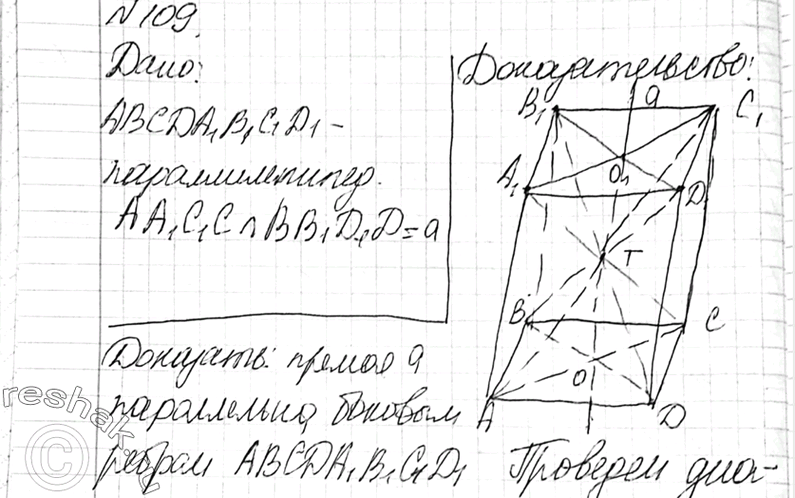 №109.
Дано:
ABCDA₁B₁C₁D₁ –
параллилепипед.
AA₁C₁C ∩ BB₁D₁D = a
Доказать: прямая a
параллельна боковым
ребрам ABCDA₁B₁C₁D₁
Доказательство:
B₁ a C₁
A₁ O₁ D₁
T
B C
O
A D
Проведем диа-
reshak.ru
©